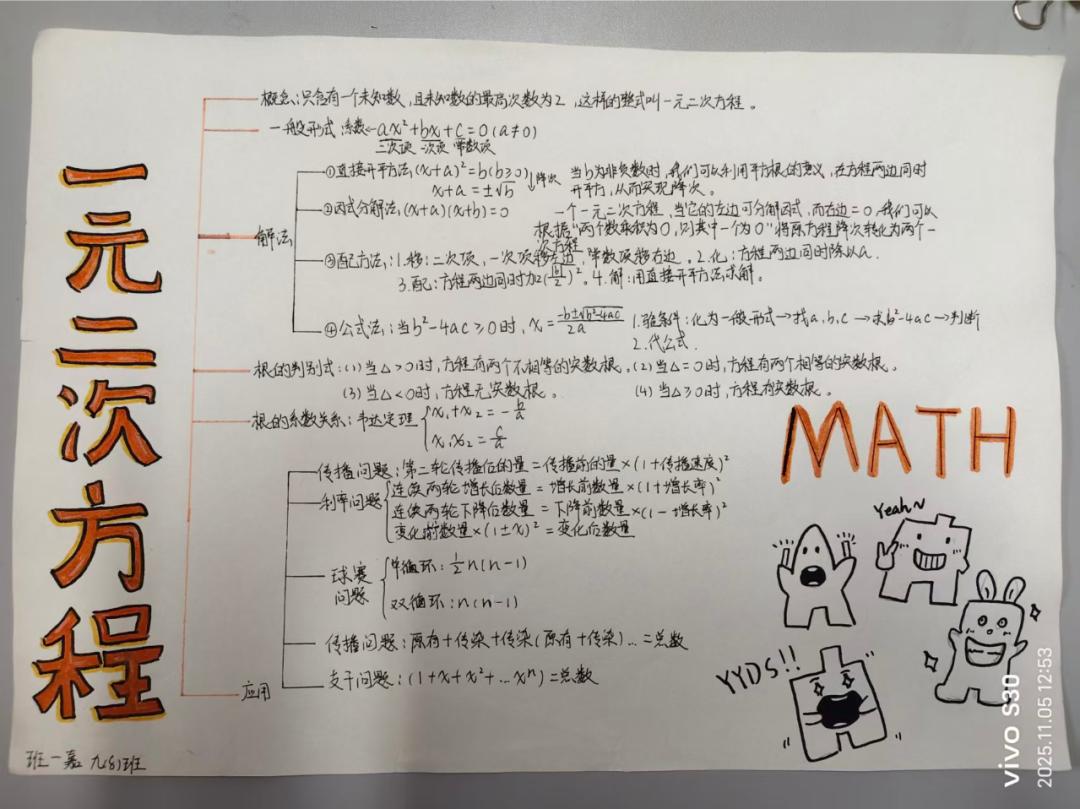 一元二次方程
概念:只含有一个未知数,且未知数的最高次数为2,这样的整式叫一元二次方程。
一般形式 系数←ax²+bx+c=0(a≠0)
二次项 一次项 常数项
解法
①直接开平方法,(x+a)²=b(b≥0)
x+a=±√b ↓降次
当b为非负数时,我们可以利用平方根的意义,在方程两边同时
开平方,从而实现降次。
②因式分解法,(x+a)(x+b)=0
一个一元二次方程,当它的左边可分解因式,而右边=0,我们可以
根据"两个数乘积为0,则其中一个为0"将原方程降次转化为两个一
次方程
③配方法:1.移:二次项,一次项移左边,常数项移右边。2.化:方程两边同时除以a.
3.配:方程两边同时加(|b|/2)²。4.解:用直接开平方法求解。
④公式法:当b²-4ac≥0时,x=(-b±√b²-4ac)/2a
1.验条件:化为一般形式→找a,b,c→求b²-4ac→判断
2.代公式.
根的判别式:(1)当△>0时,方程有两个不相等的实数根。(2)当△=0时,方程有两个相等的实数根。
(3)当△<0时,方程无实数根。 (4)当△≥0时,方程有实数根。
根的系数关系:韦达定理
x₁+x₂=-b/a
x₁x₂=c/a
应用
传播问题:第二轮传播后的量=传播前的量×(1+传播速度)²
利率问题
连续两轮增长后数量=增长前数量×(1+增长率)²
连续两轮下降后数量=下降前数量×(1-增长率)²
变化前数量×(1±x)²=变化后数量
球赛
问题
单循环:½n(n-1)
双循环:n(n-1)
传播问题:原有+传染+传染(原有+传染)…=总数
支干问题:(1+x+x²+…xⁿ)=总数
MATH
Yeah~
YYDS!!
班一嘉 九(8)班
vivo S30
2025.11.05 12:53